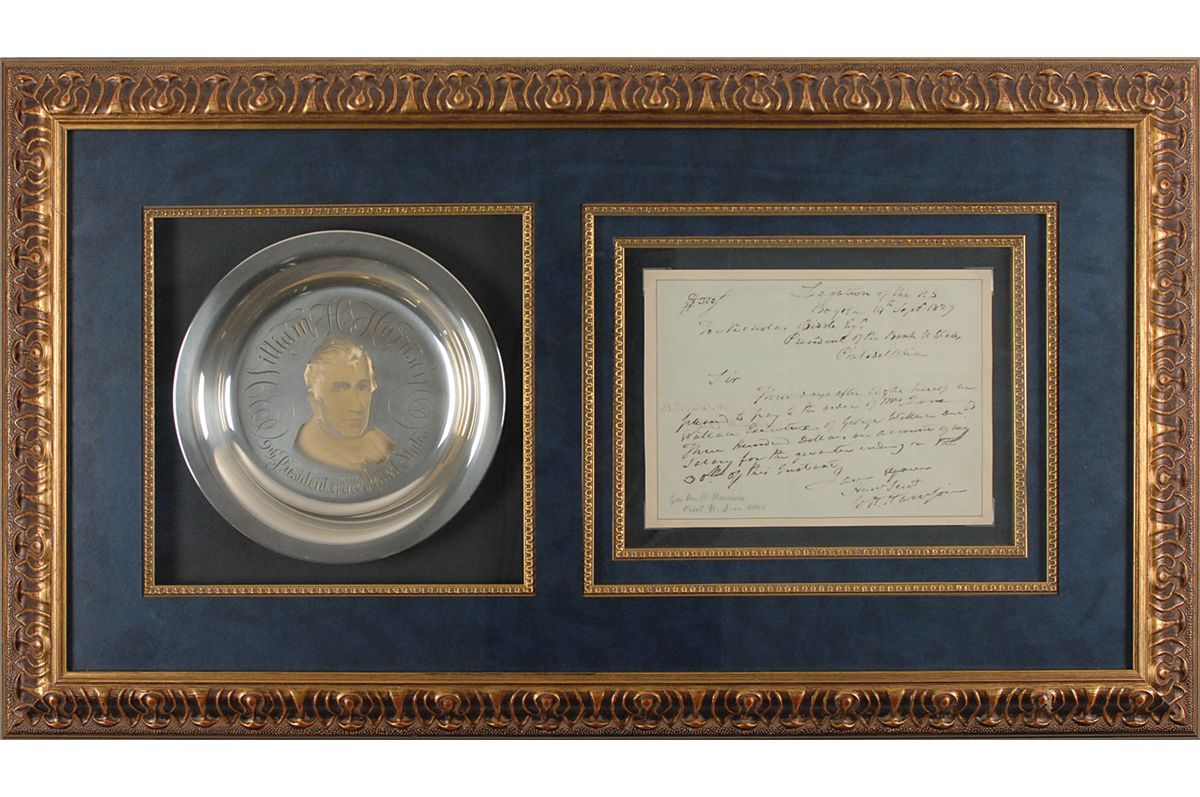 William H. Harrison
9th President of the United States
Legation of the U.S.
Bogota 14th Sept 1829
To Nicholas Biddle Esqr
President of the Bank U States
Philadelphia
Sir
Three days after sight please be
pleased to pay to the order of Mrs
Executrix of George
Three Hundred Dollars on account of my
Salary for the quarter ending on the
30th of this Instant
I am
Your
Servt
W H Harrison
Gen Wm H Harrison
Prest U.S. in 1840